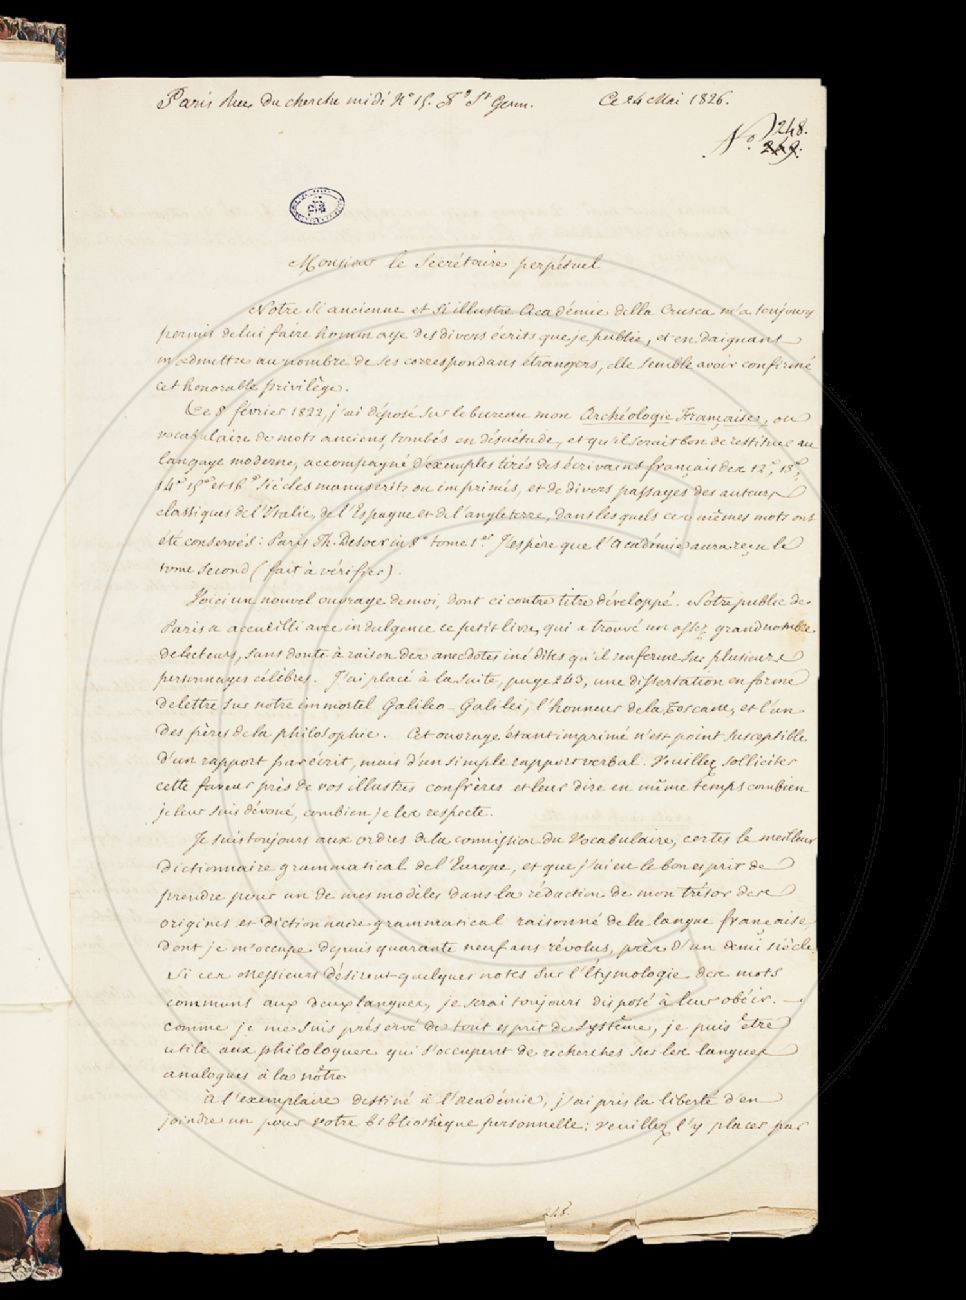 Paris Rue du cherche midi N° 15. Fg St Germ. Ce 24 Mai 1826.
N° 248.
249.
Monsieur le Secrétaire perpétuel
Votre si ancienne et si illustre Académie della Crusca m'a toujours
permis de lui faire hommage des divers écrits que je publie, et en daignant
m'admettre au nombre de ses correspondans étrangers, elle semble avoir confirmé
cet honorable privilège.
Le 8 février 1822, j'ai déposé sur le bureau mon Archéologie Française, ou
vocabulaire de mots anciens tombés en désuétude, et qu'il serait bon de restituer au
langage moderne, accompagné d'exemples tirés des écrivains français des 12e, 13e,
14e 15e et 16e siècles manuscrits ou imprimés, et de divers passages des auteurs
classiques de l'Italie, de l'Espagne et de l'angleterre, dans lesquels ces mêmes mots ont
été conservés : Paris Th. Desoer in 8° tome 1er. J'espère que l'Académie aura reçu le
tome second (fait à vérifier).
Voici un nouvel ouvrage de moi, dont ci contre titre développé. Notre public de
Paris a accueilli avec indulgence ce petit livre, qui a trouvé un assez grand nombre
de lecteurs, sans doute à raison des anecdotes inédites qu'il renferme sur plusieurs
personnages célèbres. J'ai placé à la suite, page 243, une dissertation en forme
de lettre sur votre immortel Galileo-Galilei, l'honneur de la Toscane, et l'un
des pères de la philosophie. Cet ouvrage étant imprimé n'est point susceptible
d'un rapport par écrit, mais d'un simple rapport verbal. Veuillez solliciter
cette faveur près de vos illustres confrères et leur dire en même temps combien
je leur suis dévoué, combien je les respecte.
Je suis toujours aux ordres de la commission du Vocabulaire, certes le meilleur
dictionnaire grammatical de l'Europe, et que j'ai eu le bon esprit de
prendre pour un de mes modèles dans la rédaction de mon trésor des
origines et dictionnaire grammatical raisonné de la langue française,
dont je m'occupe depuis quarante neuf ans révolus, près d'un demi siècle
Si ces Messieurs désirent quelques notes sur l'Etymologie des mots
communs aux deux langues, je serai toujours disposé à leur obéir. —
comme je me suis préservé de tout esprit de système, je puis être
utile aux philologues qui s'occupent de recherches sur les langues
analogues à la nôtre
à l'exemplaire destiné à l'académie, j'ai pris la liberté d'en
joindre un pour votre bibliothèque personnelle ; veuillez l'y placer par
248.